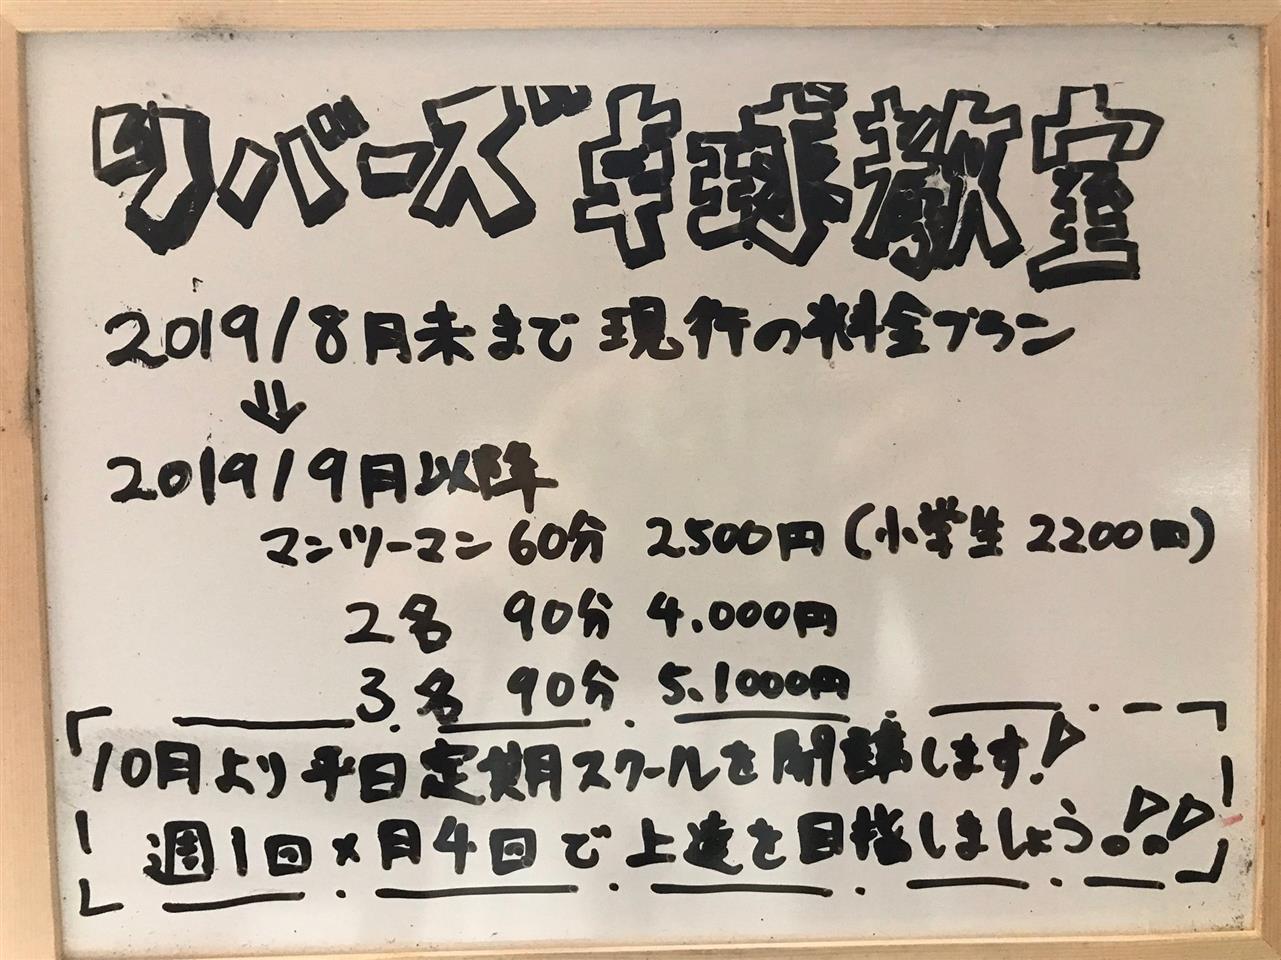 リバーズ卓球教室
2019/8月末まで 現行の料金プラン
⇓
2019/9月以降
マンツーマン 60分 2500円 (小学生 2200円)
2名 90分 4.000円
3名 90分 5.1000円
10月より平日定期スクールを開講します!
週1回×月4回で上達を目指しましょう!!